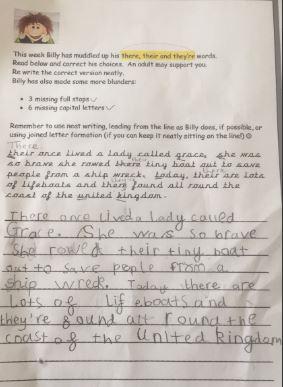 This week Billy has muddled up his there, their and they're words.
Read below and correct his choices. An adult may support you.
Re write the correct version neatly.
Billy has also made some more blunders:
• 3 missing full stops ✓
• 6 missing capital letters ✓
Remember to use neat writing, leading from the line as Billy does, if possible, or
using joined letter formation (if you can keep it neatly sitting on the line!) ☺
There
their once lived a lady called grace, she was
so brave she rowed there tiny boat out to save
people from a ship wreck. today, their are lots
of lifeboats and there found all round the
coast of the united kingdom.
There once lived a lady called
Grace. She was so brave
She rowed their tiny boat
out to save peple from a
ship wreck. Today there are
Lots of Lifeboats and
they're found all round the
coast of the United Kingdom